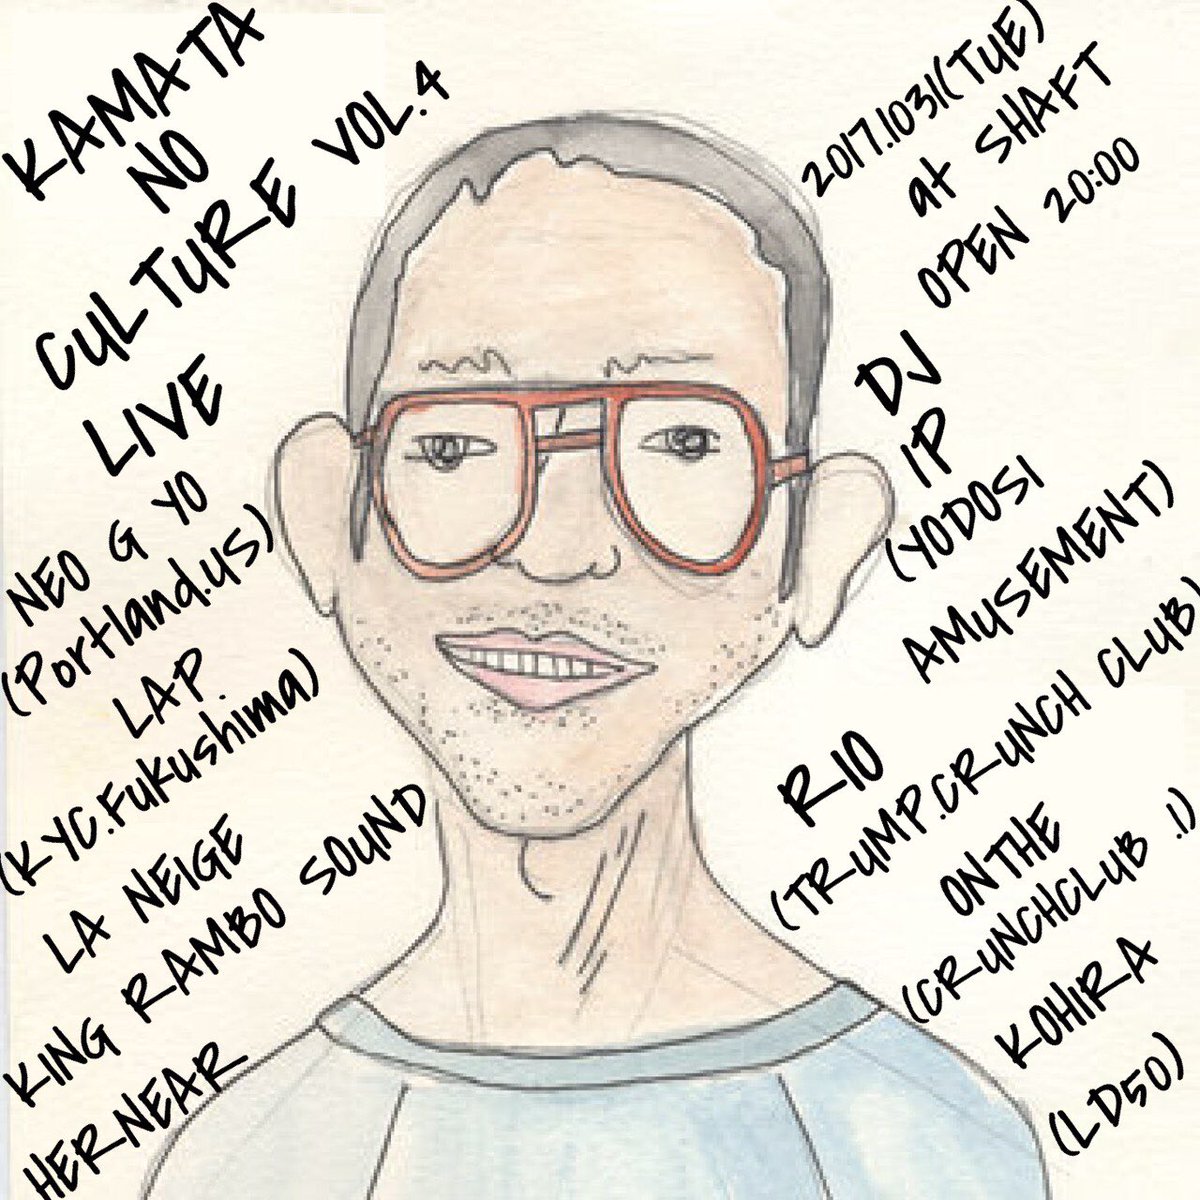 KAMATA
NO
CULTURE VOL.4
LIVE
NEO G YO
(Portland.US)
LAP
(KYC.Fukushima)
LA NEIGE
KING RAMBO SOUND
HERNEAR
2017.1031(TUE)
at SHAFT
OPEN 20:00
DJ
IP
(YODOSI
AMUSEMENT)
RIO
(TRUMP.CRUNCH CLUB)
ONTHE
(CRUNCHCLUB .!)
KOHIRA
(LD50)